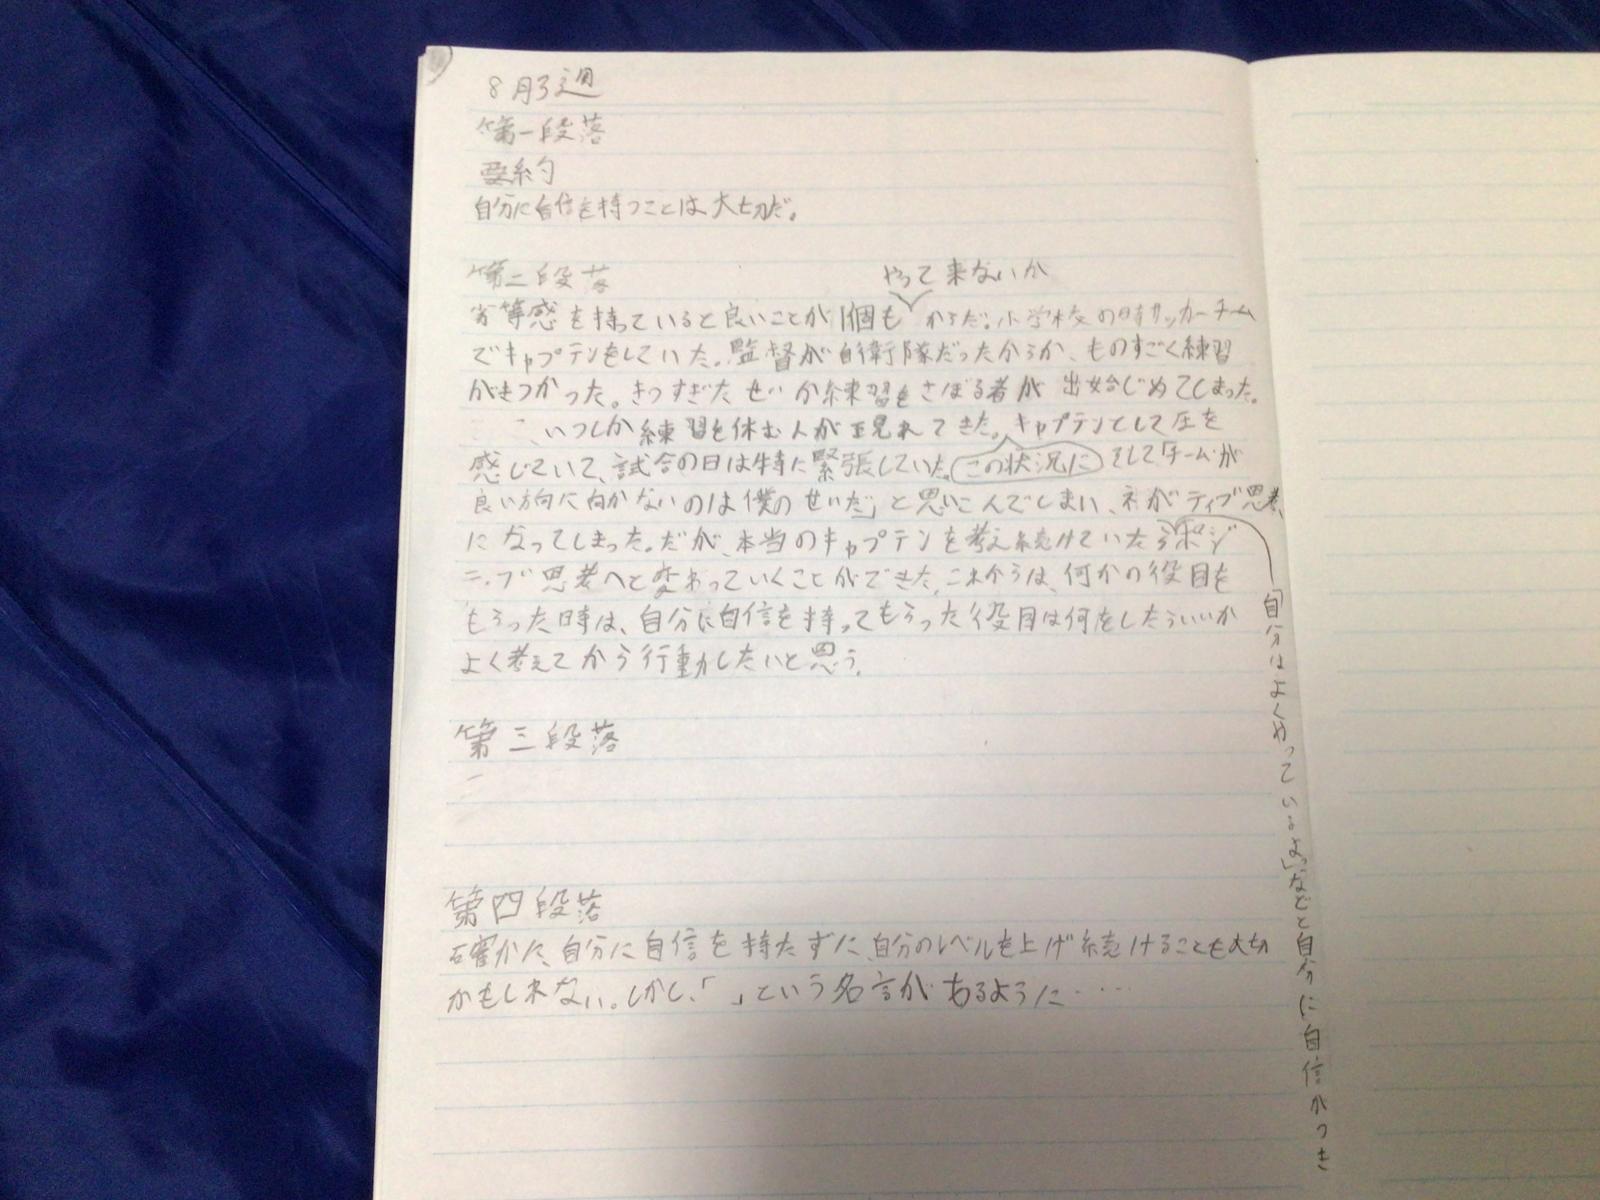 8月3週
第一段落
要約
自分に自信を持つことは大切だ。
第二段落
やって来ないか
劣等感を持っていると良いことが1個も からだ。小学校の時サッカーチーム
でキャプテンをしていた。監督が自衛隊だったからか、ものすごく練習
がきつかった。きつすぎたせいか練習をさぼる者が出始じめてしまった。
いつしか練習を休む人が現れてきた。キャプテンとして圧を
感じていて、試合の日は特に緊張していた。この状況に そして「チームが
良い方向に向かないのは僕のせいだ」と思いこんでしまい、ネガティブ思考
になってしまった。だが、本当のキャプテンを考え続けていたらポジ
ティブ思考へと変わっていくことができた。これからは、何かの役目を
もらった時は、自分に自信を持ってもらった役目は何をしたらいいか
よく考えてから行動したいと思う。
「自分はよくやっているよ」などと自分に自信がつき
第三段落
第四段落
確かに、自分に自信を持たずに、自分のレベルを上げ続けることも大切
かもしれない。しかし、「 」という名言があるように・・・・